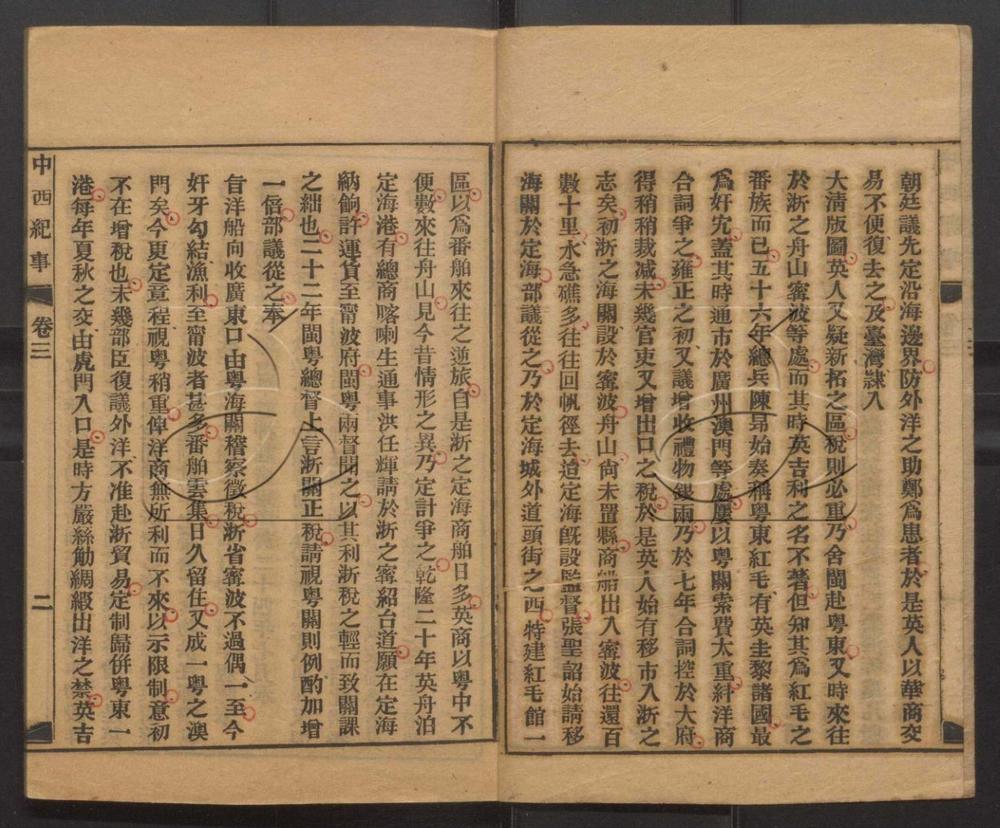 朝廷議先定沿海邊界防外洋之助鄭爲患者於是英人以華商交
易不便復去之及臺灣隸入
大清版圖英人又疑新拓之區稅則必重乃舍閩赴粵東又時來往
於浙之舟山寗波等處而其時英吉利之名不著但知其爲紅毛之
番族而已五十六年總兵陳昻始奏稱粵東紅毛有英圭黎諸國最
爲奸宄蓋其時通市於廣州澳門等處屢以粵關索費太重絆洋商
合詞爭之雍正之初又議增收禮物銀兩乃於七年合詞控於大府
得稍稍裁减未幾官吏又增出口之稅於是英人始有移市入浙之
志矣初浙之海關設於寗波舟山尙未置縣商船出入寗波往還百
數十里水急礁多往往回帆徑去迨定海旣設監督張聖詔始請移
海關於定海部議從之乃於定海城外道頭街之西特建紅毛館一
區以爲番舶來往之逆旅自是浙之定海商舶日多英商以粵中不
便數來往舟山見今昔情形之異乃定計爭之乾隆二十年英舟泊
定海港有總商喀喇生通事洪任輝請於浙之寗紹台道願在定海
納餉許運貨至甯波府閩粵兩督聞之以其利浙稅之輕而致關課
之絀也二十二年閩粵總督上言浙關正稅請視粵關則例酌加增
一倍部議從之奉
旨洋船向收廣東口由粵海關稽察徵稅浙省寗波不過偶一至今
奸牙勾結漁利至甯波者甚多番舶雲集日久留住又成一粵之澳
門矣今更定章程視粵稍重俾洋商無所利而不來以示限制意初
不在增稅也未幾部臣復議外洋不准赴浙貿易定制歸併粵東一
港每年夏秋之交由虎門入口是時方嚴絲觔綢緞出洋之禁英吉
中西紀事 卷三 二